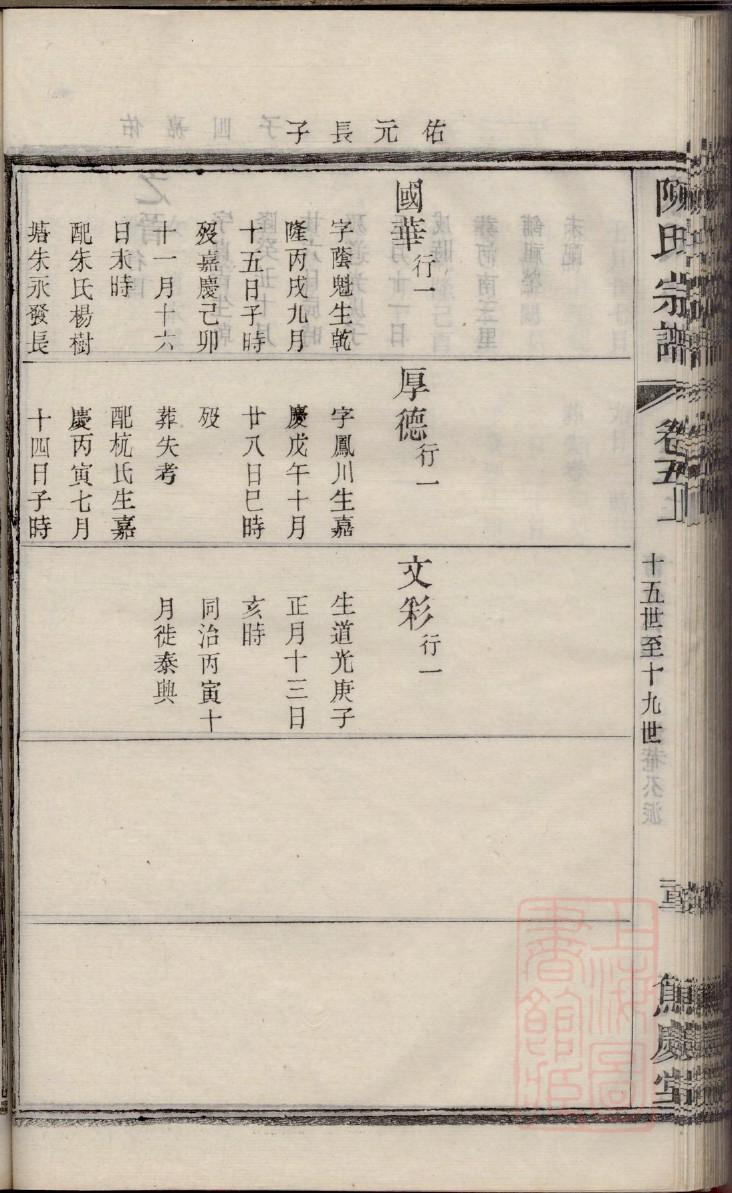 陳氏宗譜
卷五上
十五世至十九世
佑元長子
國華行一
字蔭魁生乾
隆丙戌九月
十五日子時
歿嘉慶己卯
十一月十六
日未時
配朱氏楊樹
塘朱永發長
厚德行一
字鳳川生嘉
慶戊午十月
廿八日巳時
歿
葬失考
配杭氏生嘉
慶丙寅七月
十四日子時
文彩行一
生道光庚子
正月十三日
亥時
同治丙寅十
月徙泰興
上海圖書館藏